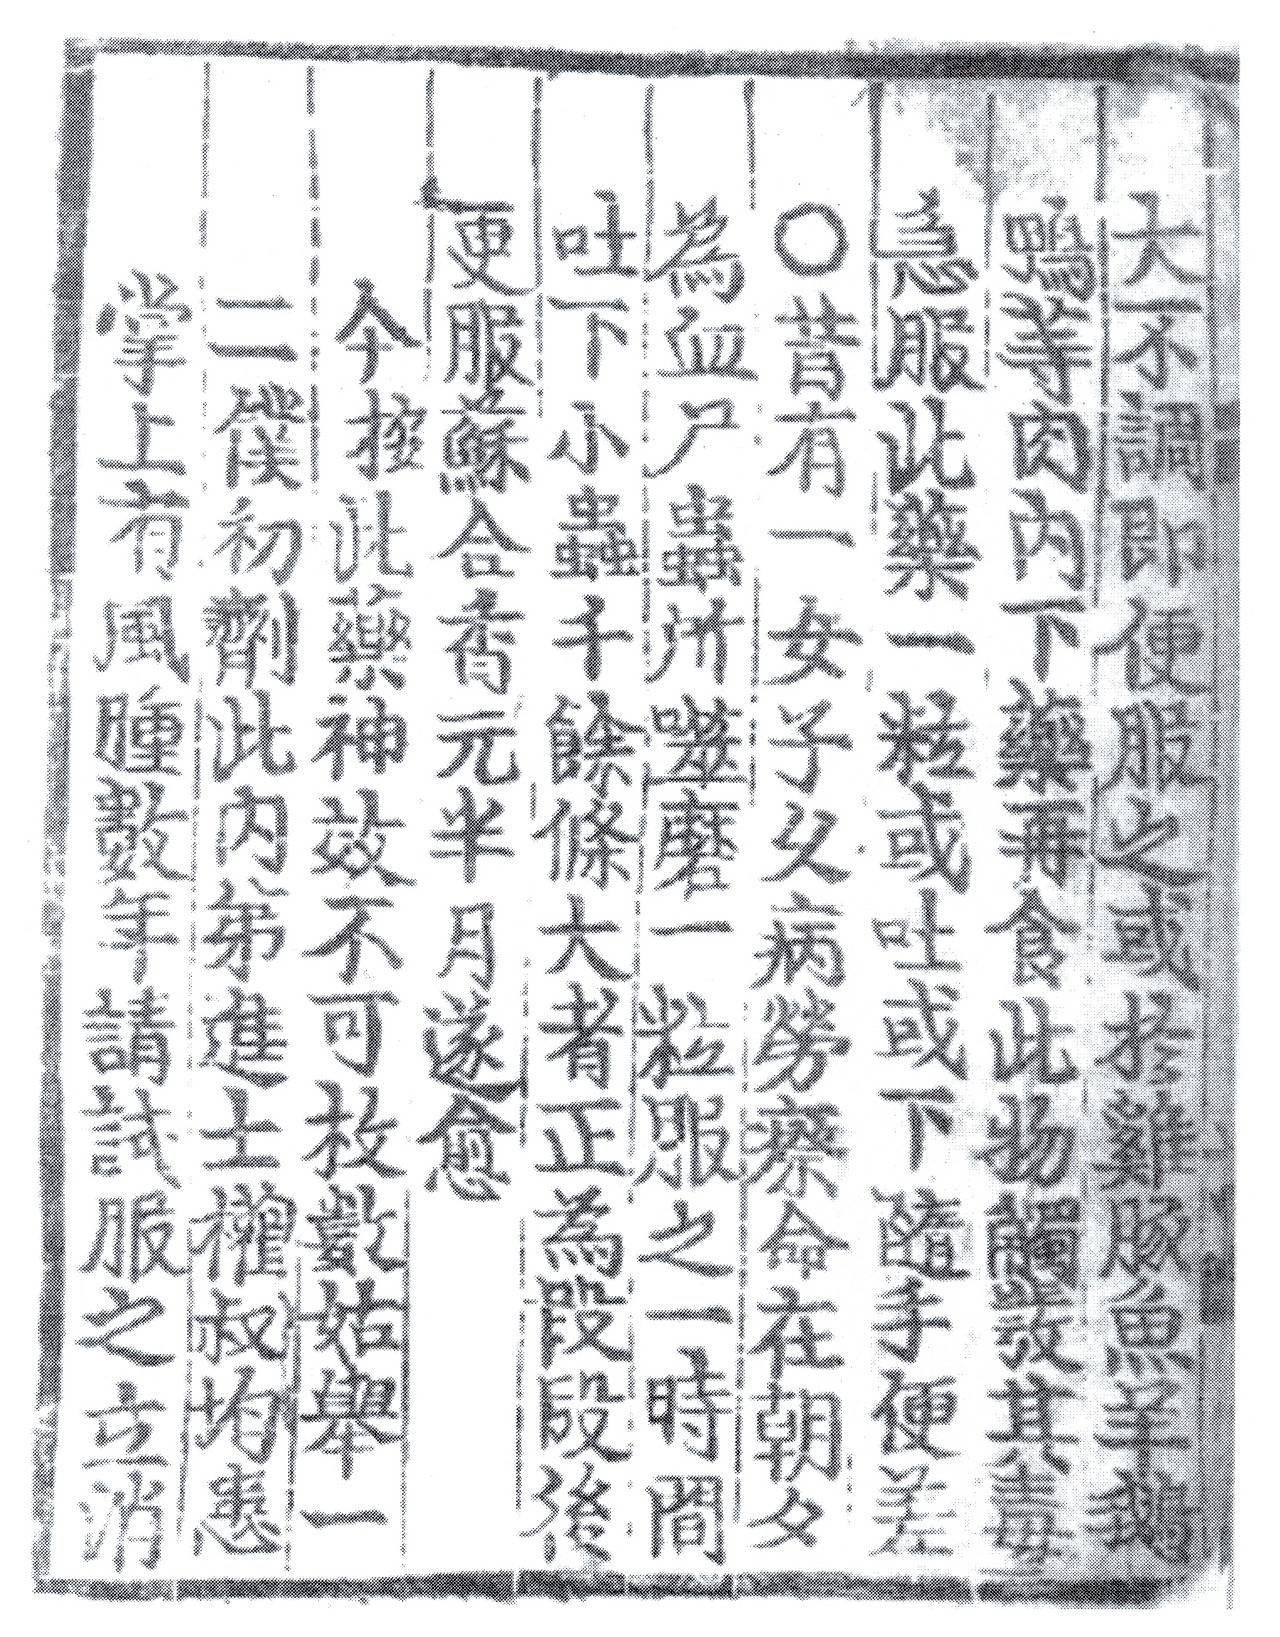 大不調即便服之或於雞豚魚羊鵝
鴨等肉內下藥再食此物觸發其毒
急服此藥一粒或吐或下隨手便差
○昔有一女子久病勞瘵命在朝夕
為血尸蟲所噬磨一粒服之一時間
吐下小蟲千餘條大者正為段段後
更服蘇合香元半月遂愈
今按此藥神效不可枚數姑舉一
二僕初劑此內弟進士權叔均患
掌上有風腫數年請試服之立消